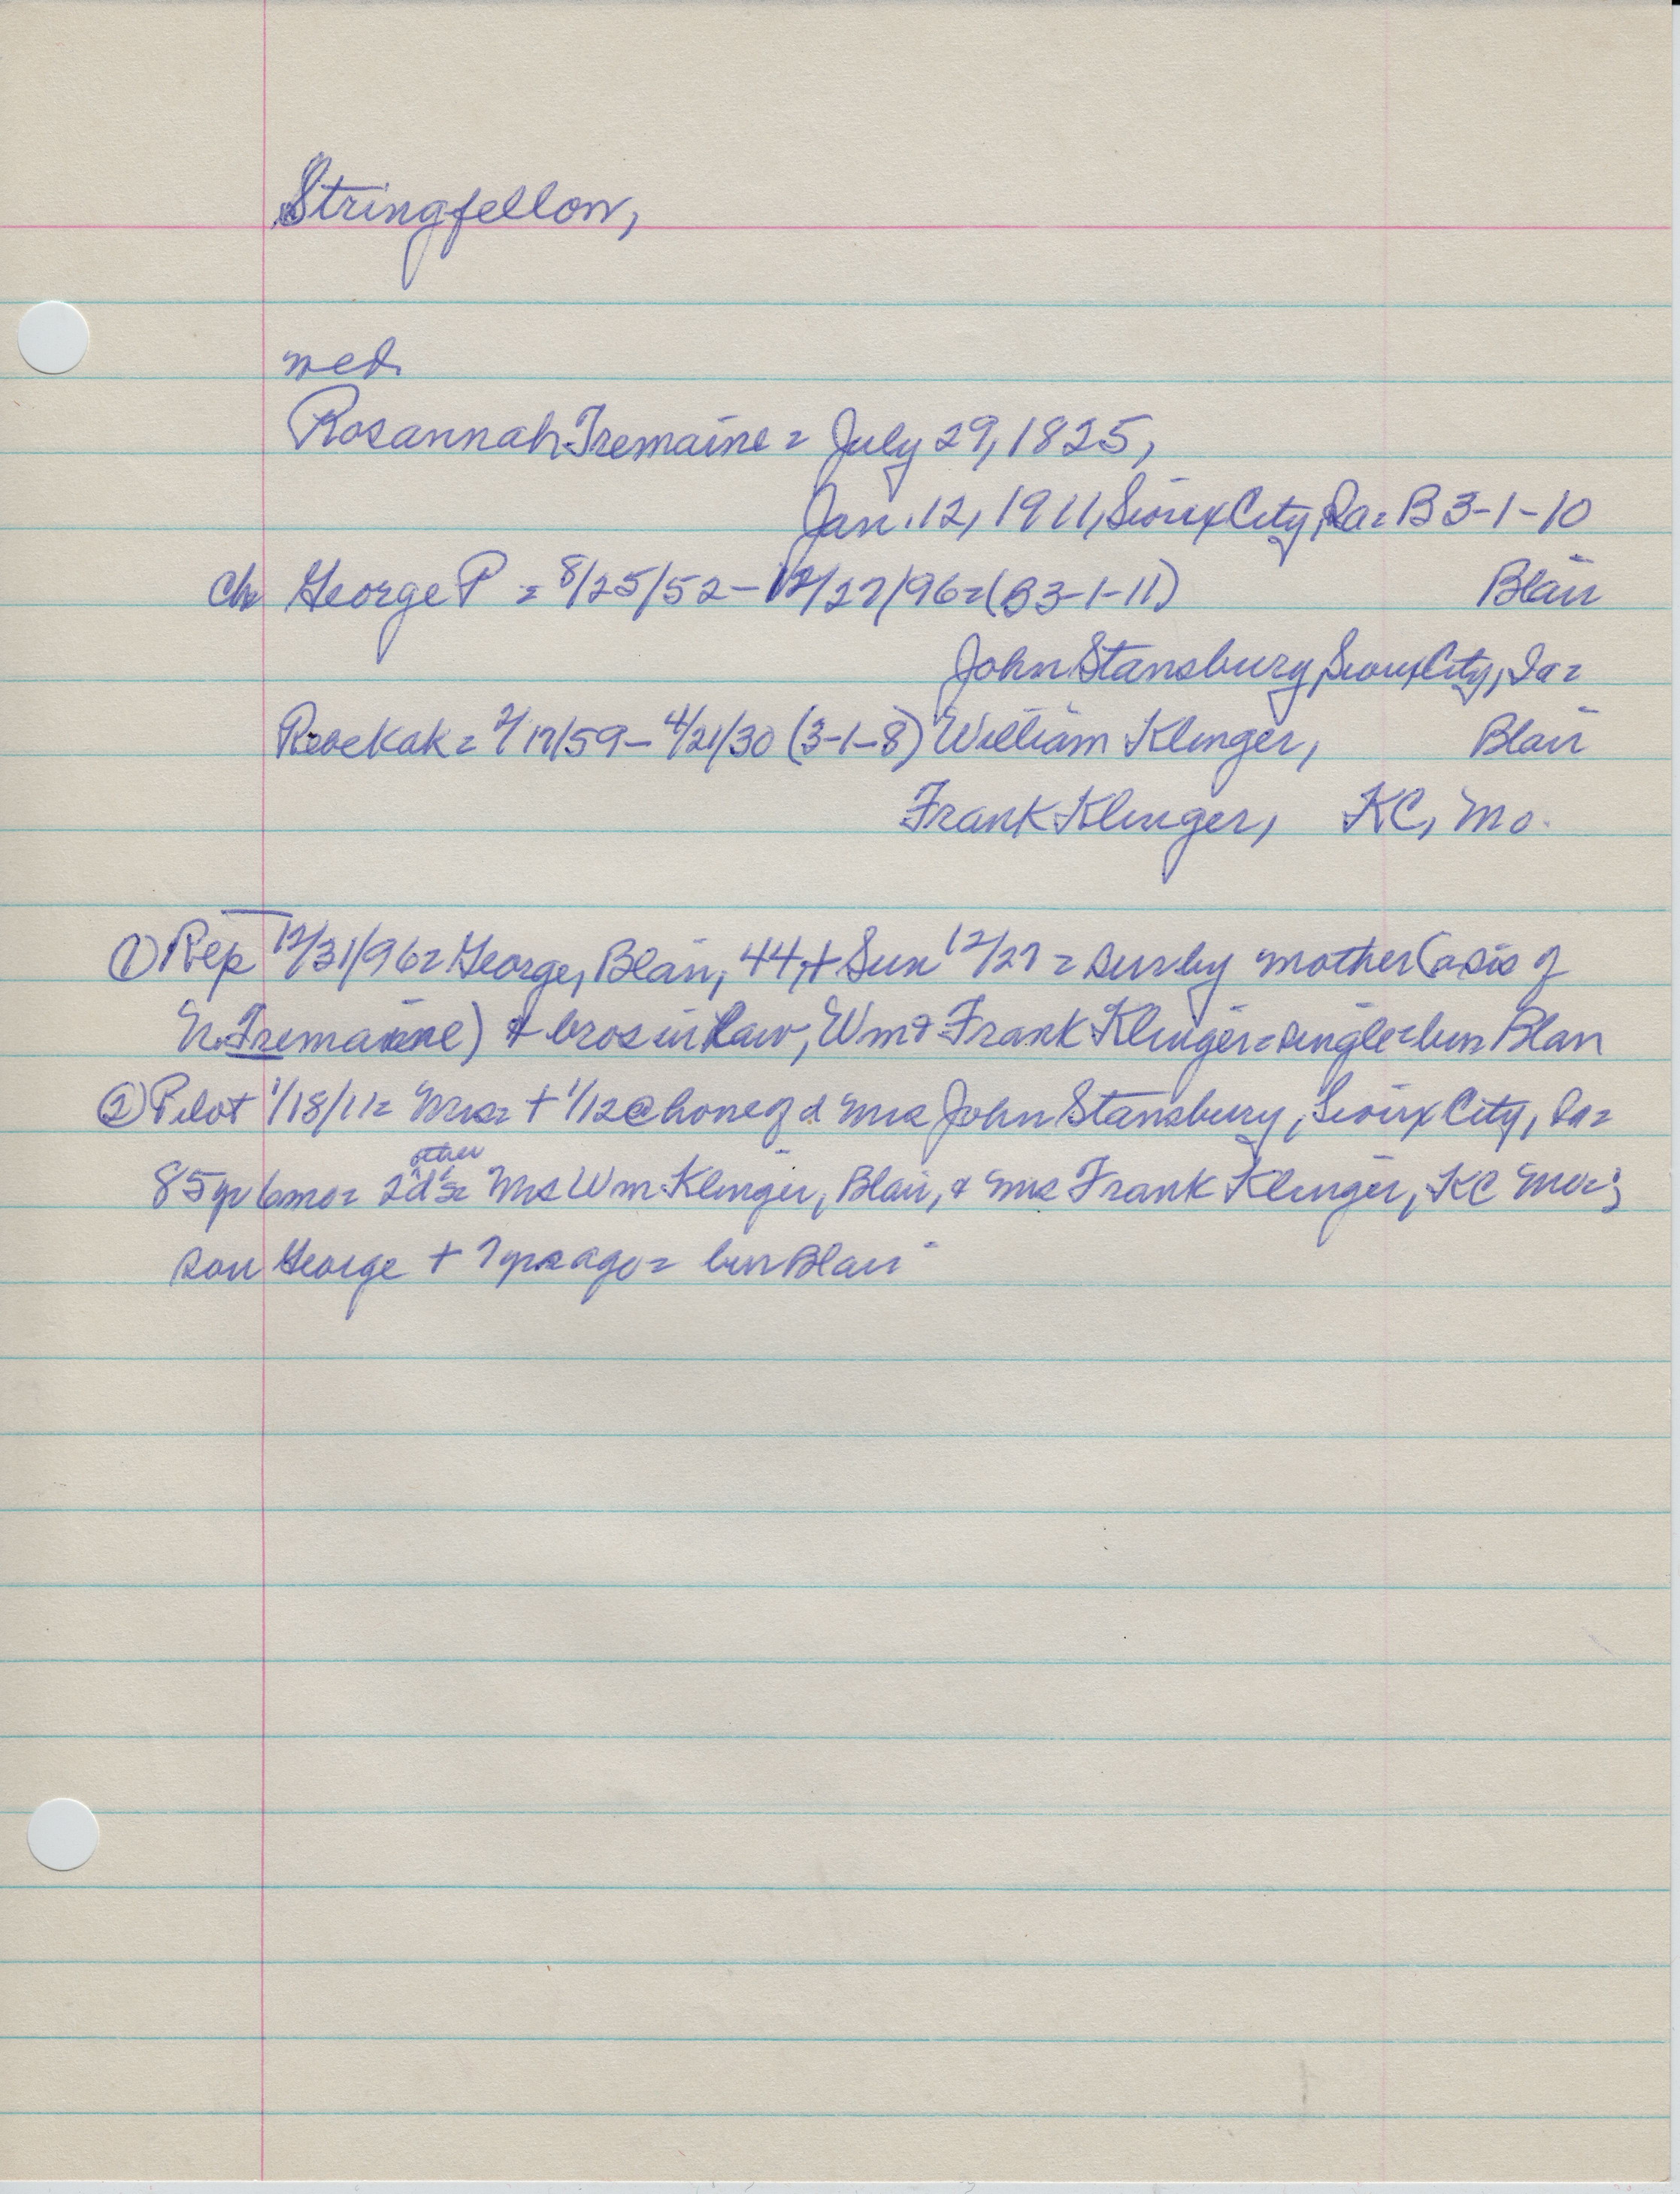 Stringfellow,
wed.
Rosannah Tremaine = July 29, 1825,
Jan. 12, 1911, Sioux City, Ia = B 3-1-10
Ch George P = 8/25/52 - 12/27/96 = (B3-1-11) Blair
John Stansbury, Sioux City, Ia =
Rebekak = 2/17/59 - 4/21/30 (3-1-8) William Klinger, Blair
Frank Klinger, KC, Mo.
① Rep 12/31/96 = George, Blair, 44, + Sun 12/27 = sur by mother (a sis of
N. Tremaine) & bros in law, Wm & Frank Klinger = single = bur Blair
② Pilot 1/18/11 = Mrs = + 1/12 @ home of d Mrs John Stansbury, Sioux City, Ia =
85 yr 6 mo = 2 other d's = Mrs Wm. Klinger, Blair, & Mrs Frank Klinger, KC Mo = ;
son George + 7 yrs ago = bur Blair